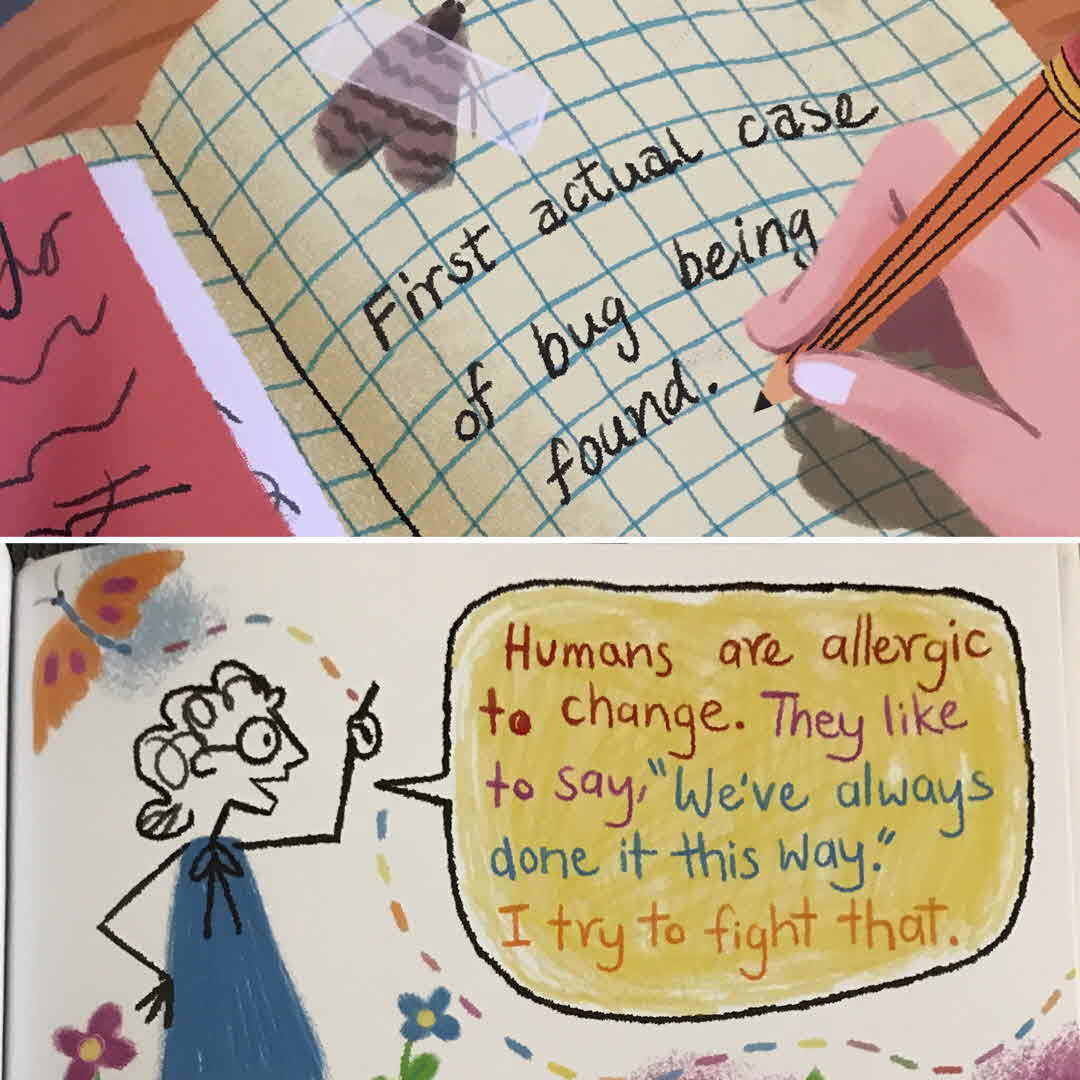 First actual case
of bug being
found.
Humans are allergic
to change. They like
to say, "We've always
done it this way."
I try to fight that.